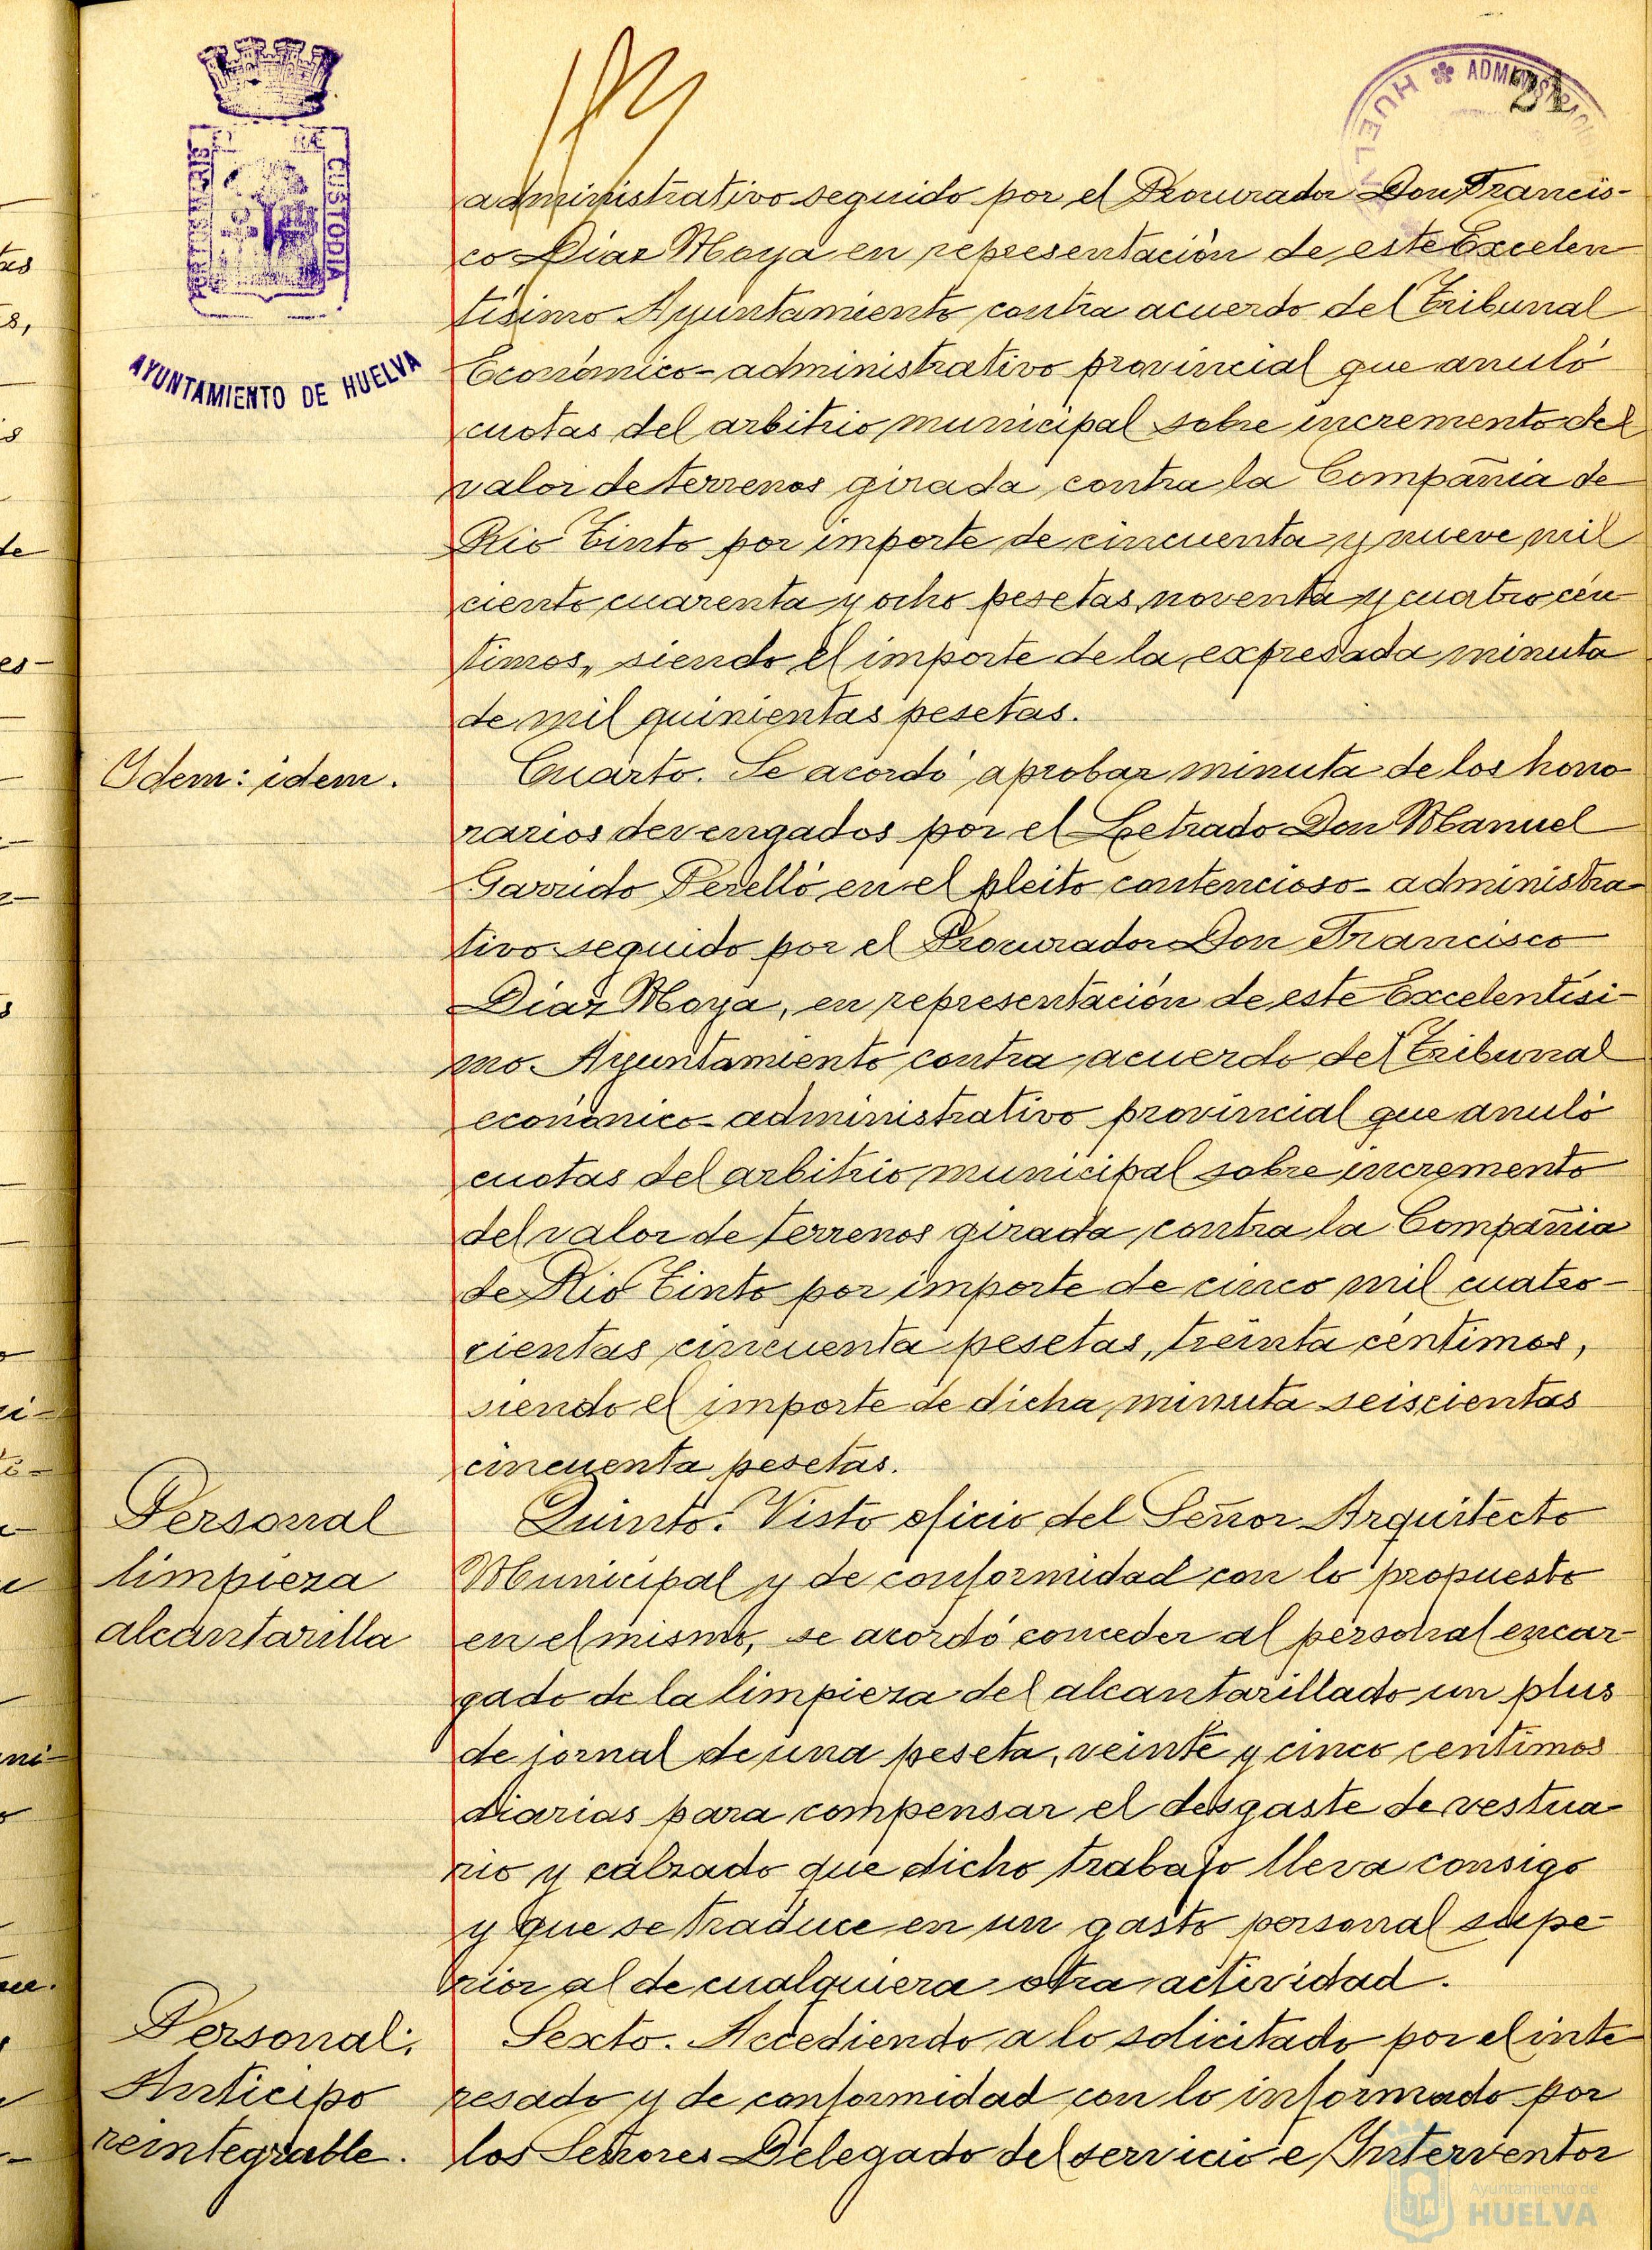 HUELVA * ADMINISTRACION
21
PORTUS MARIS
CUSTODIA
AYUNTAMIENTO DE HUELVA
administrativo seguido por el Procurador Don Francis-
co Diaz Moya en representación de este Excelen
tísimo Ayuntamiento contra acuerdo del Tribunal
Económico-administrativo provincial que anuló
cuotas del arbitrio municipal sobre incremento del
valor de terrenos girada contra la Compañia de
Rio Tinto por importe de cincuenta y nueve mil
ciento cuarenta y ocho pesetas noventa y cuatro cén
timos, siendo el importe de la expresada minuta
de mil quinientas pesetas.
Idem: idem.
Cuarto. Se acordó aprobar minuta de los hono
rarios devengados por el Letrado Don Manuel
Garrido Perelló en el pleito contencioso-administra-
tivo seguido por el Procurador Don Francisco
Diaz Moya, en representación de este Excelentísi-
mo Ayuntamiento contra acuerdo del Tribunal
económico-administrativo provincial que anuló
cuotas del arbitrio municipal sobre incremento
del valor de terrenos girada contra la Compañia
de Rio Tinto por importe de cinco mil cuatro-
cientas cincuenta pesetas, treinta céntimos,
siendo el importe de dicha minuta seiscientas
cincuenta pesetas.
Personal
limpieza
alcantarilla
Quinto. Visto oficio del Señor Arquitecto
Municipal y de conformidad con lo propuesto
en el mismo, se acordó conceder al personal encar-
gado de la limpieza del alcantarillado un plus
de jornal de una peseta, veinte y cinco centimos
diarias para compensar el desgaste de vestua-
rio y calzado que dicho trabajo lleva consigo
y que se traduce en un gasto personal supe-
rior al de cualquiera otra actividad.
Personal.
Anticipo
reintegrable.
Sexto. Accediendo a lo solicitado por el inte
resado y de conformidad con lo informado por
los Señores Delegado del servicio e Interventor
Ayuntamiento de
HUELVA